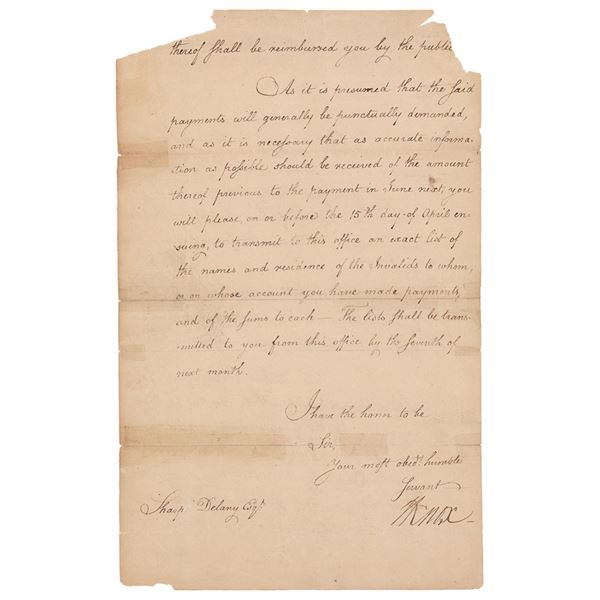 thereof shall be reimbursed you by the public
As it is presumed that the said
payments will generally be punctually demanded,
and as it is necessary that as accurate informa-
tion as possible should be received of the amount
thereof previous to the payment in June next, you
will please, on or before the 15th day of April en-
suing, to transmit to this office an exact list of
the names and residence of the Invalids to whom,
or on whose account you have made payments,
and of the sums to each — The lists shall be trans-
mitted to you from this office by the seventh of
next month.
I have the honor to be
Sir,
Your most obedt. humble
Servant
HKnox
Sharp Delany Esqr.